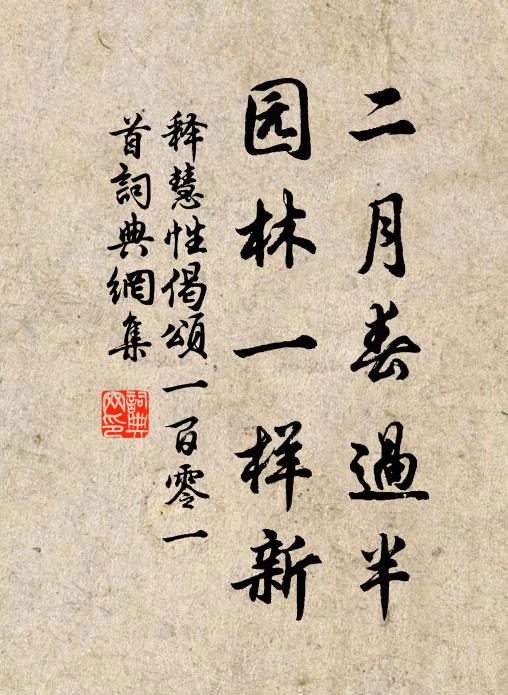 二月春過半
园林一样新
释慧性偈頌一百零一
首詞典網集
詞典
网印